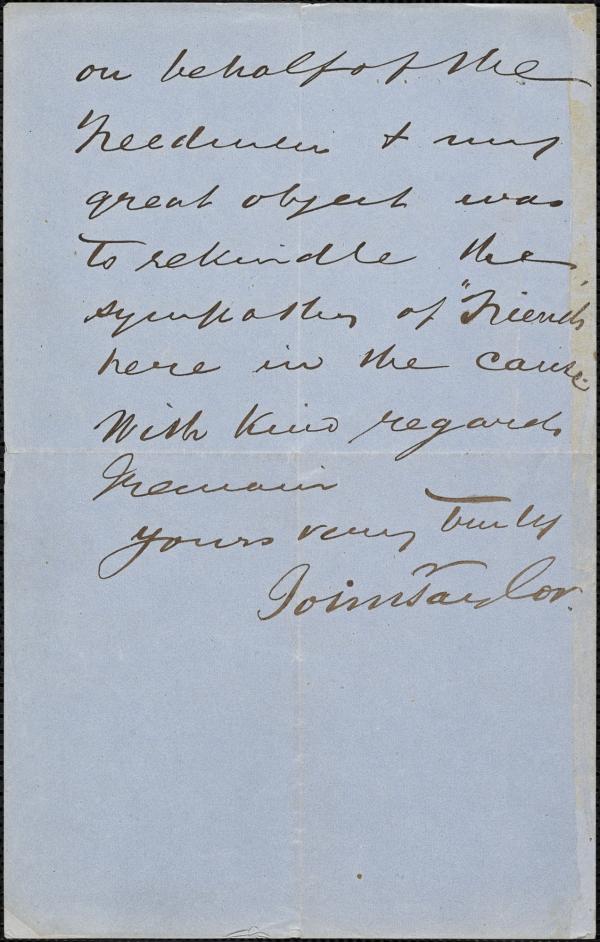 on behalf of the
Freedmen & my
great object was
to rekindle the
sympathy of "Friends"
here in the cause.
With kind regards
I remain
yours very truly
John Taylor.